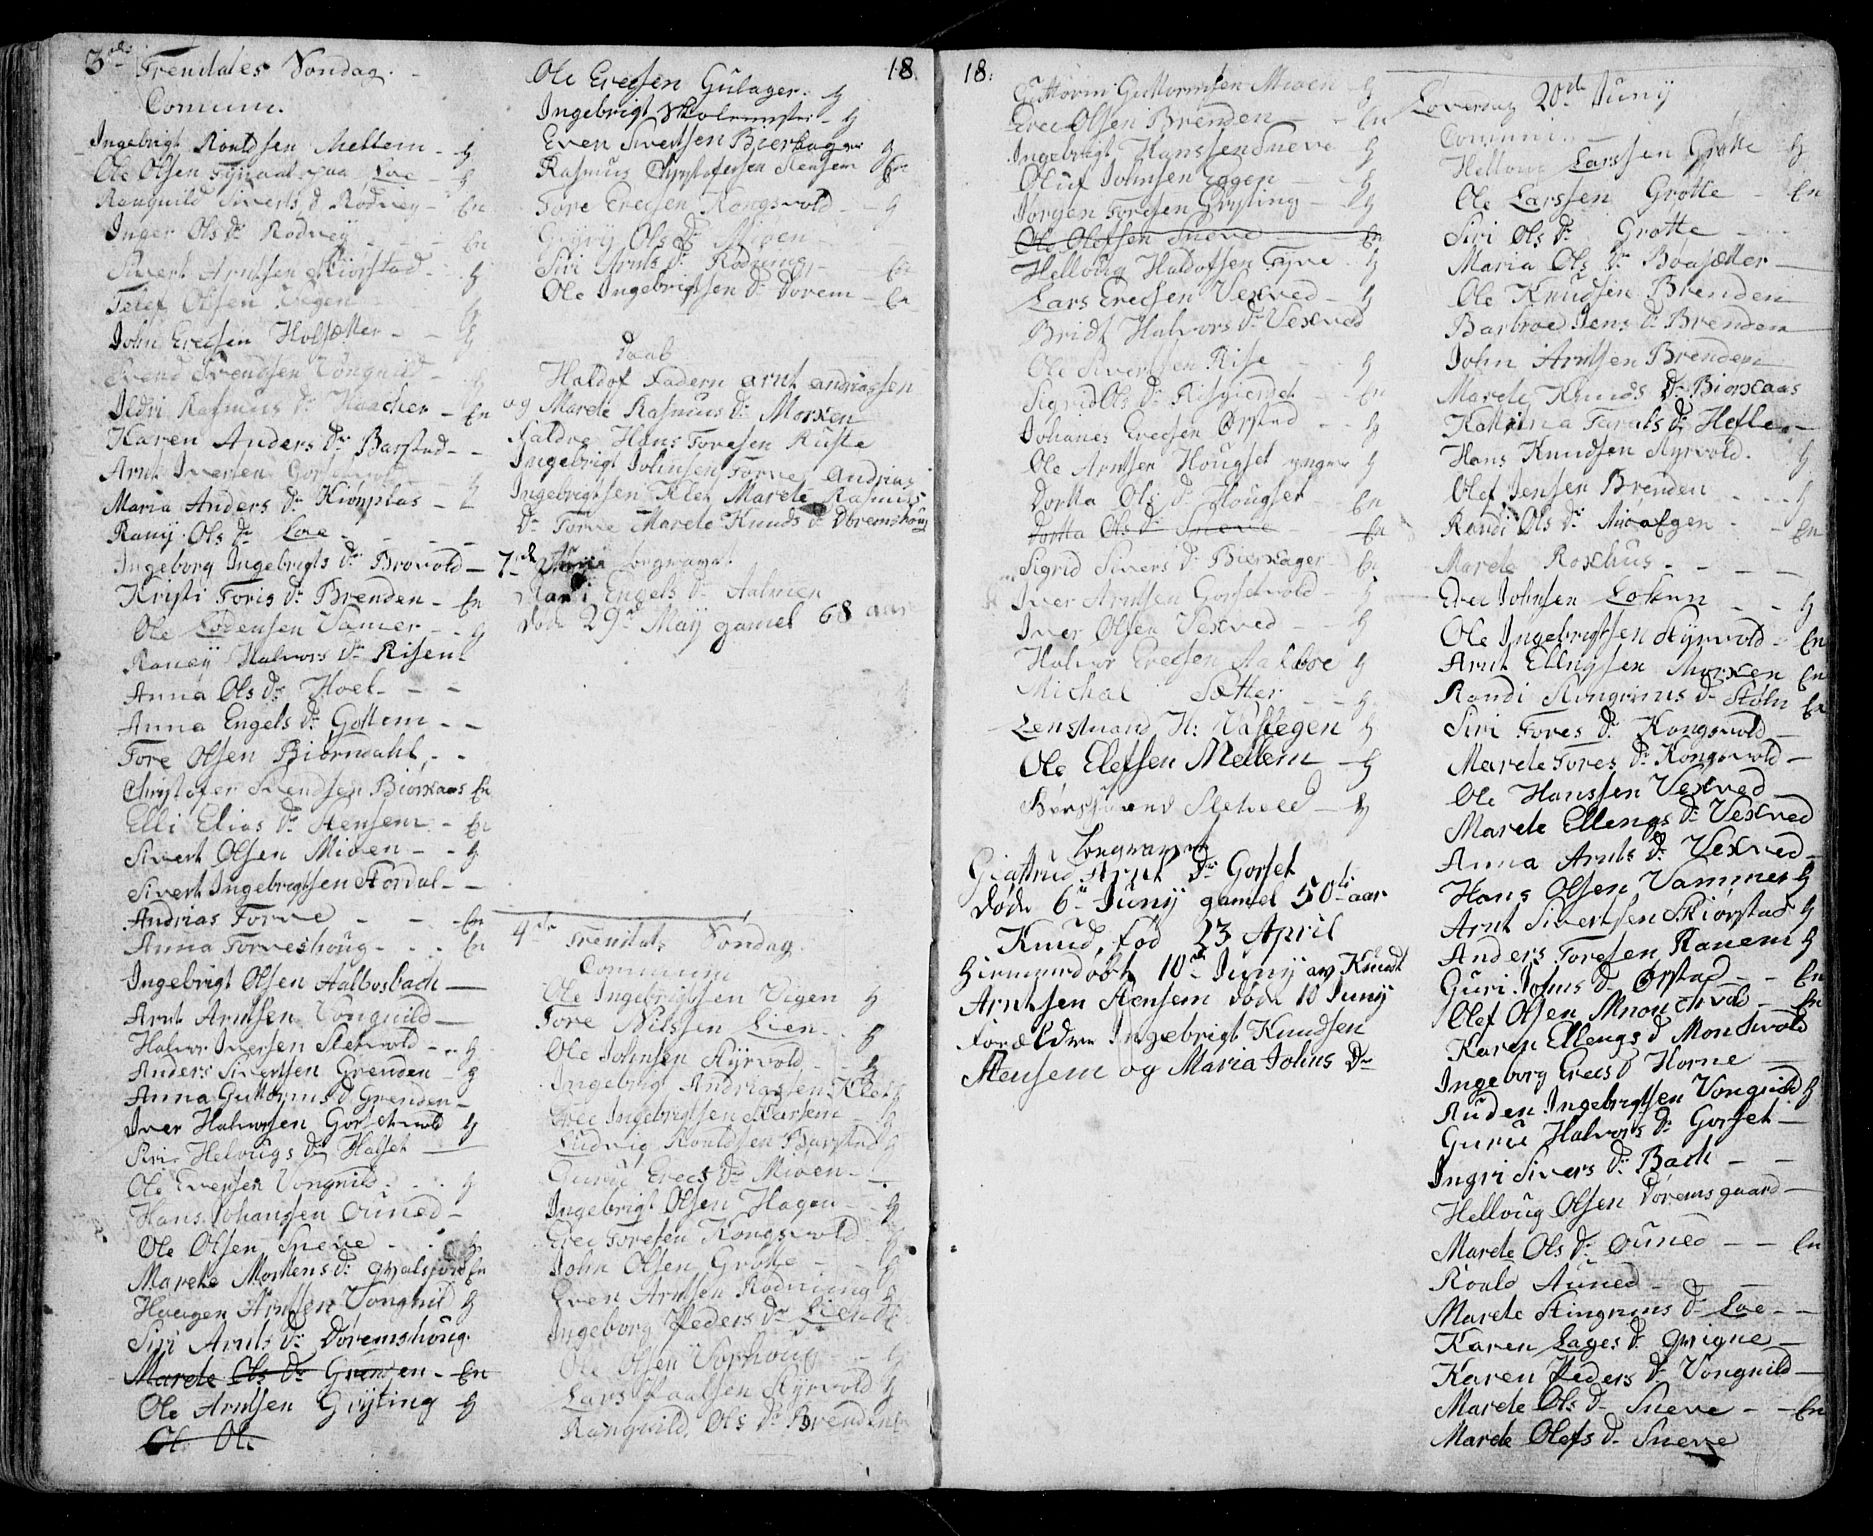 3die Trenitates Søndag.
Comune.
Ingebrigt Roaldsen Mellem - H
Ole Olsen paa Loe - H
Ranguild Siverts Dr Rødvey - En
Inger Ols Dr Rødvey - - En
Sivert Arntsen Skiørstad - H
Olsen Vegen H
John Erecsen Holsætter - - H
Svend Svendsen Vongnild - H
Ildri Rasmus Dr Haacher - En
Karen Anders Dr Barstad - -
Arnt Iversen H
Maria Anders Dr -
Ranij Ols Dr Loe - - -
Ingeborg Ingebrigts Dr Brovold -
Kristi Toris Dr Brenden - En
Ole Lodensen Vamer - - H
Raneij Halvors Dr Risen
Anna Ols Dr Hoel - - -
Anna Engels Dr Gottem - -
Tore Olsen Biørndahl, - -
Christofer Svendsen Biørkaas En
Elli Elias Dr Stensem - En
Sivert Olsen Mioen - - H
Sivert Ingebrigtsen Stordal - -
Andrias Torve - - - En
Anna Torveshoug - - - En
Ingebrigt Olsen Aalbosbach -
Arnt Arntsen Vongnild -
Halvor Iversen Sletvold - - H
Anders Sivertsen Grenden - H
Anna Guttorms D Grenden -
Iver Halvorsen Gorsetvold H
Siri Helvugs Dr Halset -
Ole Evensen Vongnild - - H
Hans Johansen Ouned -
Ole Olsen Sneve - - H
Marete Mortens Dr En
Haagen Arntsen Vongnild H
Siri Arnts Dr Døremshoug.
Marete Ols Dr Grenden - En
Ole Arntsen Grijting H
Ol Ole
Ole Erecsen Gulager - H
18.
Ingebrigt Skolemester - H
Even Sivertsen Bierkager H
Rasmus Christofersen Stensem En
Tore Erecsen Kongsvold - - H
Ols Dr Mioen -
Siri Arnts Dr Rødning - En
Ole Ingebrigtsen Dr Dorem - En
Daab
Haldof Fadern Arnt Andriassen
og Marete Rasmus Dr Morken
Faldre Hans Toresen Riise
Ingebrigt Johnsen Torve, Andrias
Ingebrigtsen Klet Marete Rasmus
Dr Torve Marete Knuds Dr Døremshoug
7de Junii begravet
Mari Engels Dr Aalmen
døde 29de Maij gamel 68 aar
4de Trenitat. Søndag.
Commune
Ole Ingebrigtsen Vegen H
Tore Nilssen Lien - H
Ole Johnsen Styrvold - H
Ingebrigt Andriassen Klet H
Erec Ingebrigtsen H
Ludvig Roaldsen Barstad H
Guru Erecs Dr Mioen - -
Ingebrigt Olsen Hagen - - H
Erec Toresen Kongsvold - H
John Olsen Grøtte - - H
Even Arntsen Rødning H
Ingeborg Peders Dr Lien
Ole Olsen - - H
Lars Paalsen Styrvold H
Ranguild Ols Dr Brenden
18:
Guttorm Guttormsen Mioen - H
Erec Olsen Brenden - - En
Ingebrigt Hanssen Sneve H
Oluf Johnsen Eggen - - H
Jørgen Toresen Grijting - H
Ole Olefsen Sneve - En
Helloug Haldofsen Tyve H
Lars Erecsen Vexved - H
Bridt Halvors Dr Vexved
Ole Sivertsen Rise - H
Sigrid Ols Dr Risgierdet - En
Johanes Erecsen Ørsted - - H
Ole Arntsen Hougset yngre H
Dortha Ols Dr Hougset - En
Dortha Ols Dr Sneve - En
Sigrid Sivers Dr Bierkager - En
Iver Arntsen Gorsetvold - H
Iver Olsen Vexved - - H
Halvor Erecsen Aalboe H
Michal Sætter - - H
Lensmand H: Vaslegen H
Ole Elefsen Mellem - H
H
begraven
Giertrud Arnt Dr Gorset
døde 6te Junij gamel 50ti aar
Knud, fød 23 April
hiemmedøbt 10de Junij av Knudt
Arntsen Stensem døde 10 Junij
forældre Ingebrigt Knudsen
Stensem og Maria Johns Dr
Løverdag 20de Junij
Comuni
Hellou Larssen Grøtte - H
Ole Larssen Grøtte - En
Siri Ols Dr Grøtte - -
Maria Ols Dr Boasætter -
Ole Knudsen Brenden
Barbroe Jens Dr Brenden
John Arntsen Brenden
Marete Knuds Dr Biørkaas
Katrina Taralds Dr Hefle -
Hans Knudsen Styrvold. H
Olef Jensen Brenden - - - H
Randi Ols Dr - - En
Marete Roxhus - - - -
Erec Johnsen Løkken - - H
Ole Ingebrigtsen Styrvold - En
Arnt Ellingsen Morken En
Randi Stengrims Dr Støln En
Siri Tores Dr Kongsvold -
Marete Tores Dr Kongsvold -
Ole Hanssen Vexved -
Marete Ellengs Dr Vexved
Anna Arnts Dr Vexved -
Hans Olsen Vammer H
Arnt Sivertsen Skiørstad H
Anders Toresen Ranem H
Guri Johns Dr Ørstad - - En
Olef Olsen Mnonchvold - En
Karen Ellengs D Monchvold
Ingeborg Erecs D Horne -
Auden Ingebrigtsen Vongnild H
Gurue Halvors Dr Gorset -
Ingri Sivers Dr Bach - -
Helloug Olsen Døremsgaard -
Marete Ols Dr Ouned - - En
Roald Auned - -
Marete Stingrims Dr Loe - -
Karen Lages Dr Qvigne -
Karen Peders Dr Vongnild -
Marete Ols D Sneve - - En
Marete Olefs D Sneve